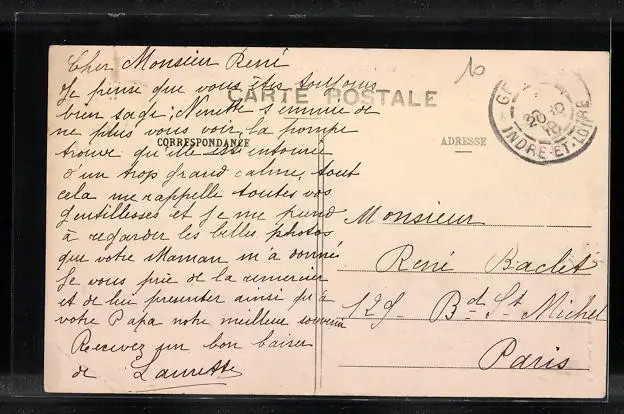 Cher Monsieur René
Je pense que vous êtes toujours
bien sage; Ninette s'ennuie de
ne plus vous voir, la pompe
trouve qu'elle est entourée
d'un trop grand calme, tout
cela me rappelle toutes vos
gentillesses et je me prend
à regarder les belles photos
que votre Maman m'a donné
Je vous prie de la remercier
et de lui presenter ainsi qu'à
votre Papa notre meilleur souvenir
Recevez un bon baiser
de Laurette
CARTE POSTALE
CORRESPONDANCE
ADRESSE
10
INDRE-ET-LOIRE
Monsieur
René Baclet
129 Bd St Michel
Paris